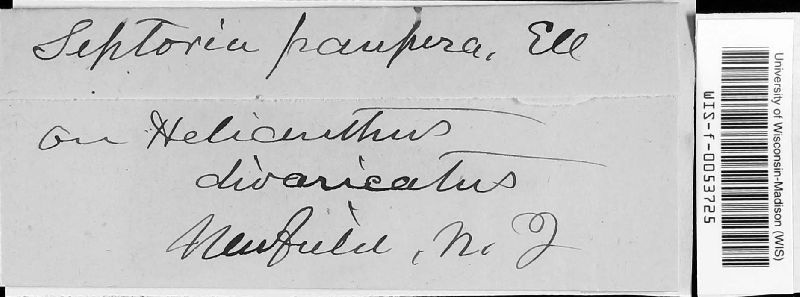 Septoria paupera, Ell
on Helianthus
divaricatus
Newfield, N. J
University of Wisconsin-Madison (WIS)
WIS-f-0053725